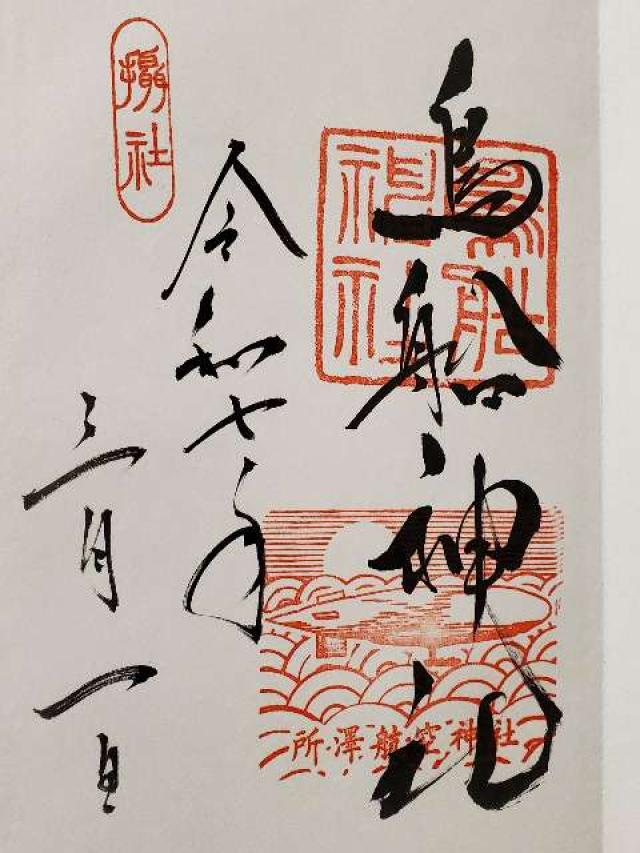 鳥船神社
鳥船
神社
所澤航空神社
令和七年
三月一日
攝社